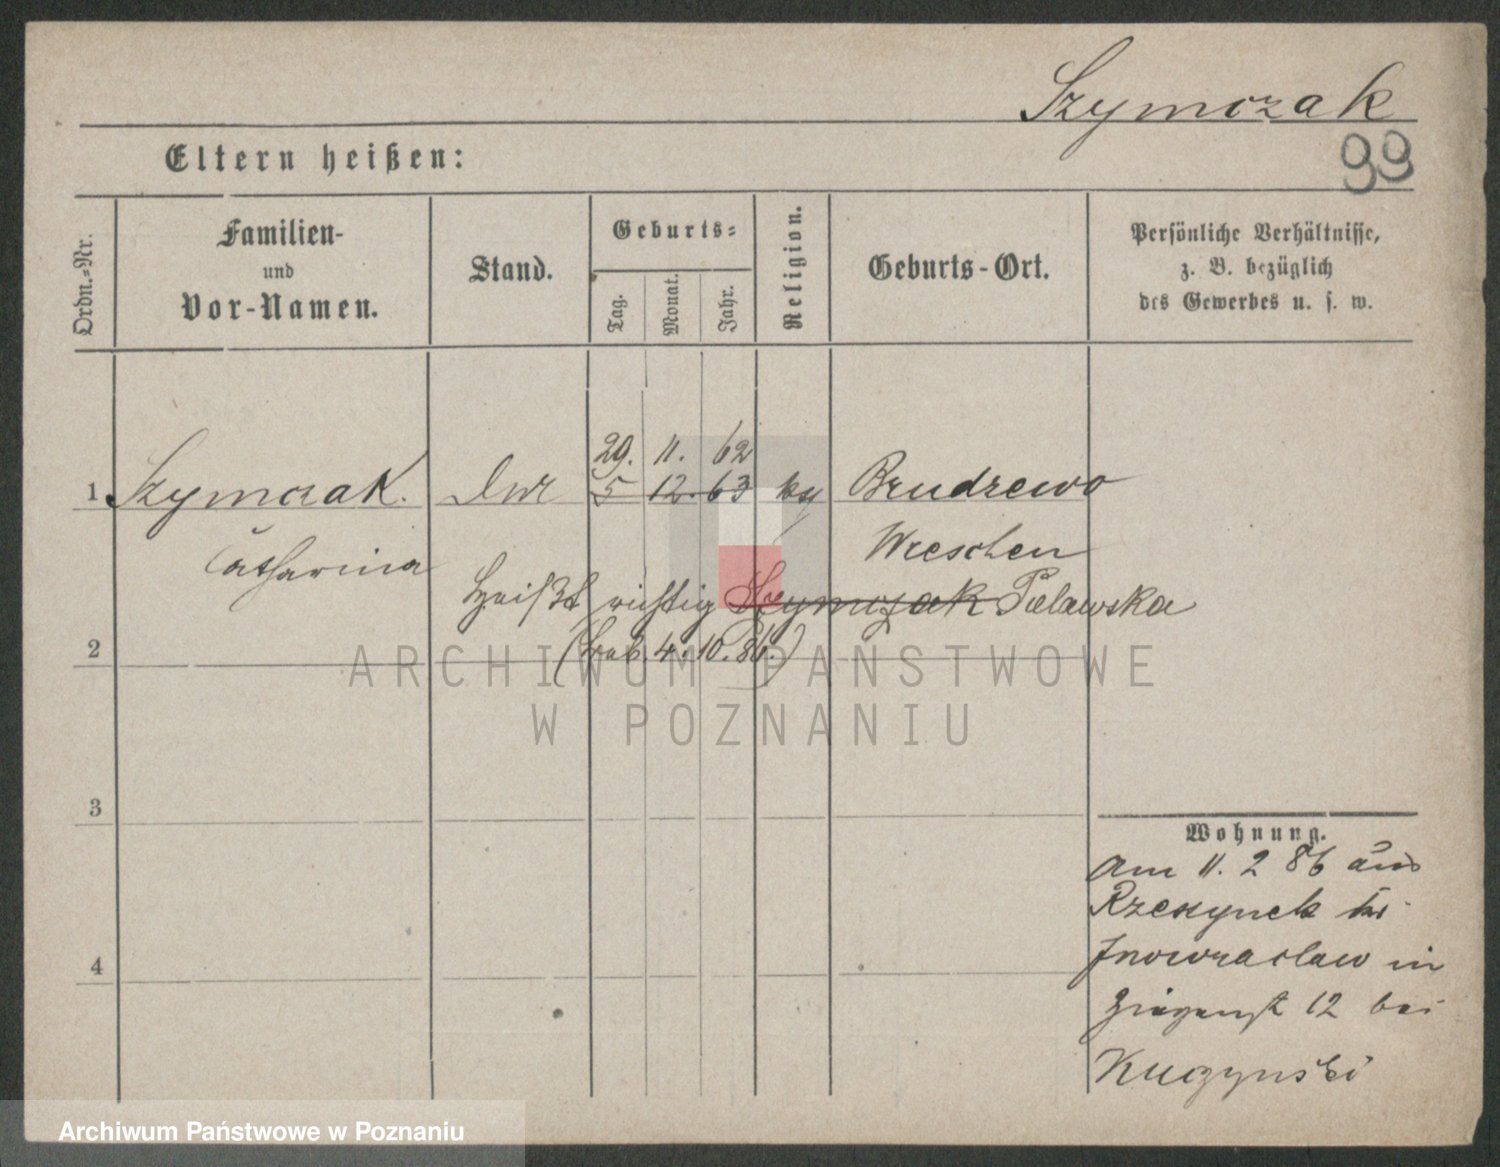 Szymczak
99
Eltern heißen:
Ordn.-Nr.
Familien-
und
Vor-Namen.
Stand.
Geburts-
Tag.
Monat.
Jahr.
Religion.
Geburts-Ort.
Persönliche Verhältnisse,
z. B. bezüglich
des Gewerbes u. s. w.
29. 11. 62
1 Szymczak. 5 12. 63 Brudzewo
Catharina Wreschen
Heißt richtig Szymczak Pulawska
2 4. 10. 86.)
ARCHIWUM PAŃSTWOWE
W POZNANIU
3
Wohnung.
Am 11. 2 86 aus
Rzeszynek
Inowrazlaw in
Ziegenst 12 bei
4
Kuczynski
Archiwum Państwowe w Poznaniu